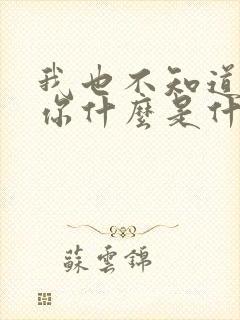 我也不知道
你什麼是什
蘇雲錦